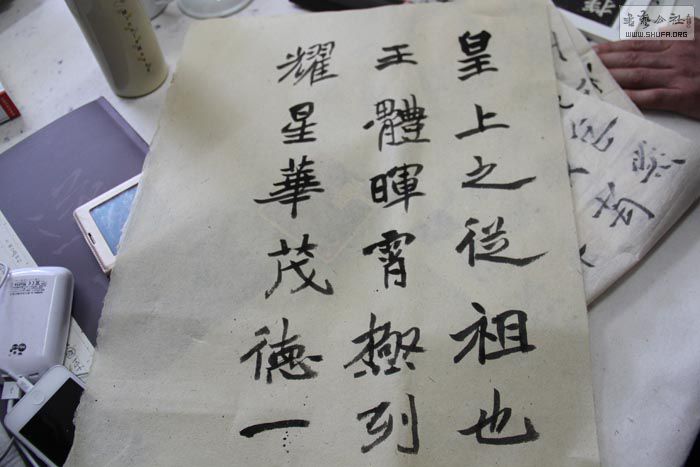 皇上之從祖也
王體暉霄極列
耀星華茂德一
書藝公社
WWW.SHUFA.ORG